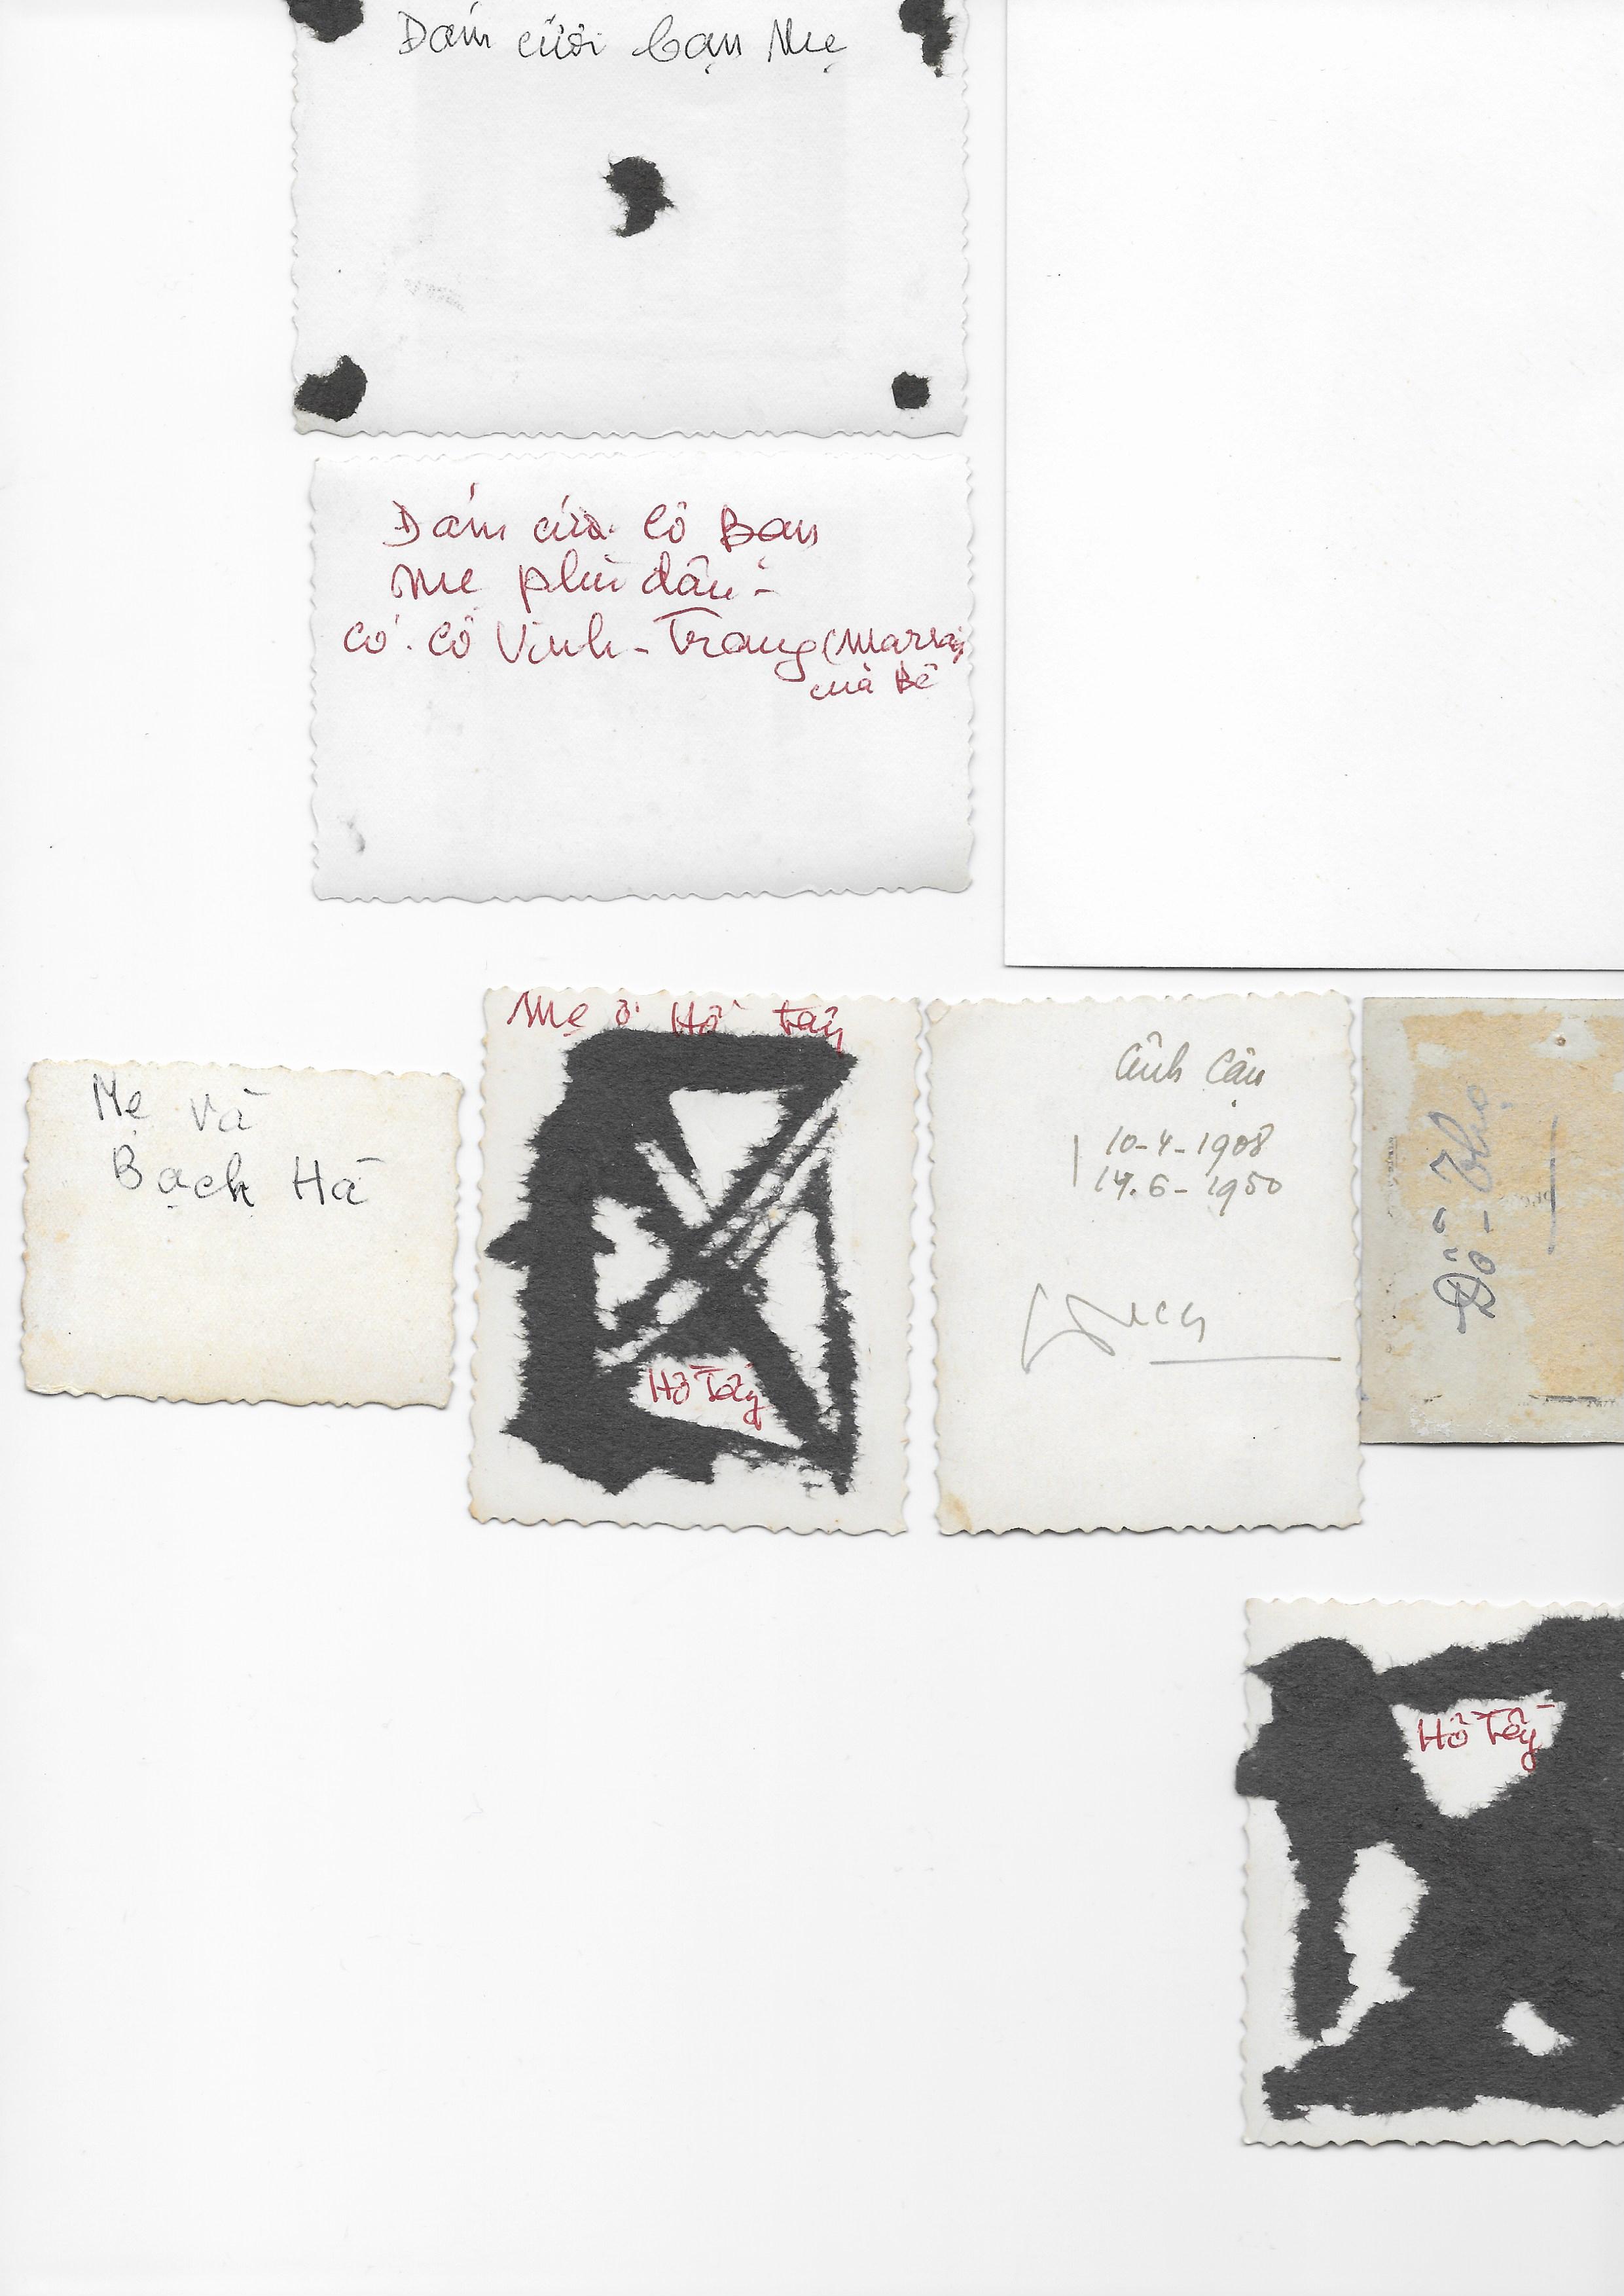 Đám cưới bạn Mẹ
Đám cưới cô Bạn
Mẹ phù dâu -
có cô Vinh - Trang (Maria)
của Bê
Mẹ và
Bạch Hà
Mẹ ở Hồ Tây
Hồ Tây
Ảnh Cậu
10-4-1908
14.6-1950
Đỗ-Thọ
Hồ Tây